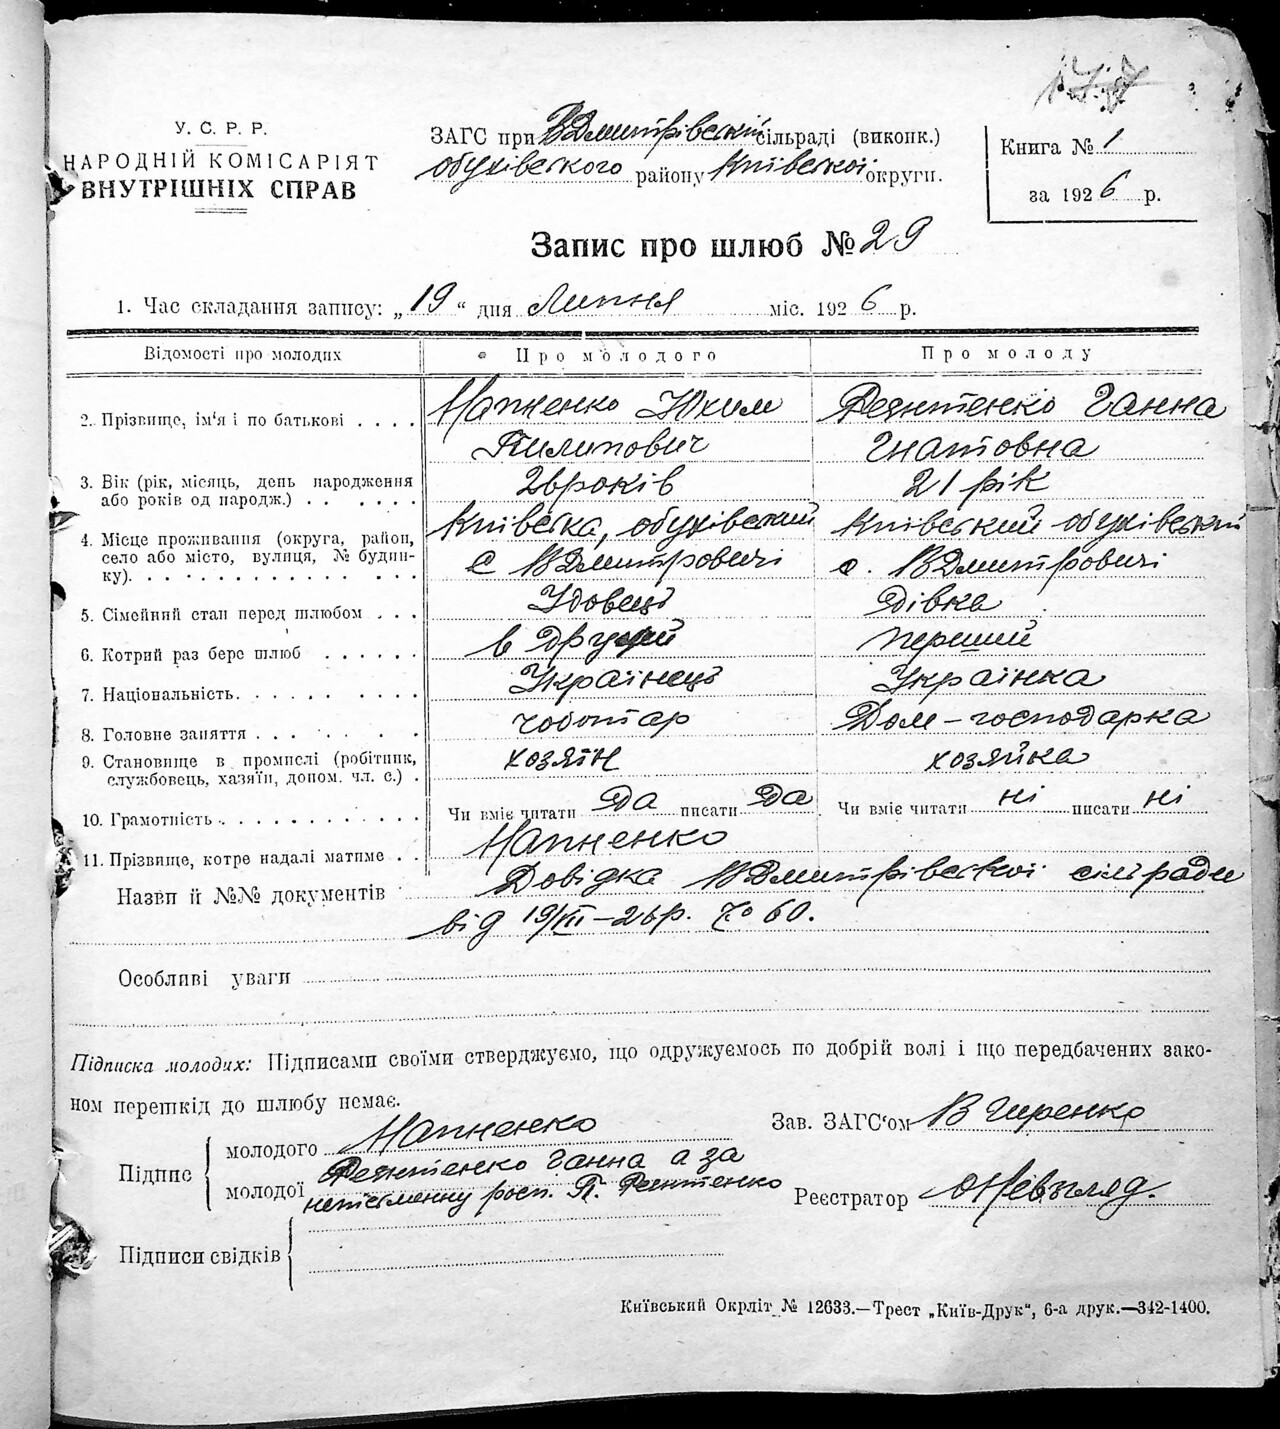 У. С. Р. Р.
НАРОДНІЙ КОМІСАРІЯТ
ВНУТРІШНІХ СПРАВ
ЗАГС при ВДмитрівській сільраді (виконк.)
обухівського району Київської округи.
Книга № 1
за 1926 р.
Запис про шлюб № 29
1. Час складання запису: „19“ дня Липня міс. 1926 р.
Відомості про молодих Про молодого Про молоду
2. Прізвище, ім'я і по батькові . . . . Юхим Ганна
Пилипович Гнатовна
3. Вік (рік, місяць, день народження
або років од народж.) . . . . . . 26 років 21 рік
4. Місце проживання (округа, район,
село або місто, вулиця, № будин-
ку). . . . . . . . . . . . . . . Київська, обухівський Київський обухівський
с ВДмитровичі с. ВДмитровичі
5. Сімейний стан перед шлюбом . . . Удовець дівка
6. Котрий раз бере шлюб . . . . . . в другий перший
7. Національність. . . . . . . . . . Українець Українка
8. Головне заняття . . . . . . . . чоботар Дом-господарка
9. Становище в промислі (робітник,
службовець, хазяїн, допом. чл. с.) . хозяїн хозяйка
10. Грамотність . . . . . . . . . . . . Чи вміє читати Да писати Да Чи вміє читати ні писати ні
11. Прізвище, котре надалі матиме . .
Назви й №№ документів Довідка ВДмитрівської сільради
від 19/VII-26р. № 60.
Особливі уваги
Підписка молодих: Підписами своїми стверджуємо, що одружуємось по добрій волі і що передбачених зако-
ном перешкід до шлюбу немає.
Підпис
молодого
молодої Ганна а за
неписьменну росп. П.
Зав. ЗАГС'ом В Гиренко
Реєстратор ОНевгляд.
Підписи свідків
Київський Окрліт № 12633.—Трест „Київ-Друк“, 6-а друк.—342-1400.